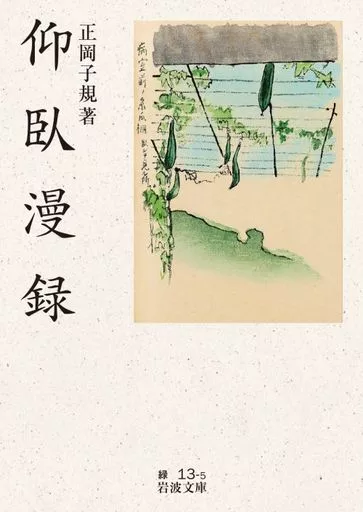 正岡子規著
仰臥漫録
病室前ノ糸瓜棚
臥シテ見ル所
緑 13-5
岩波文庫